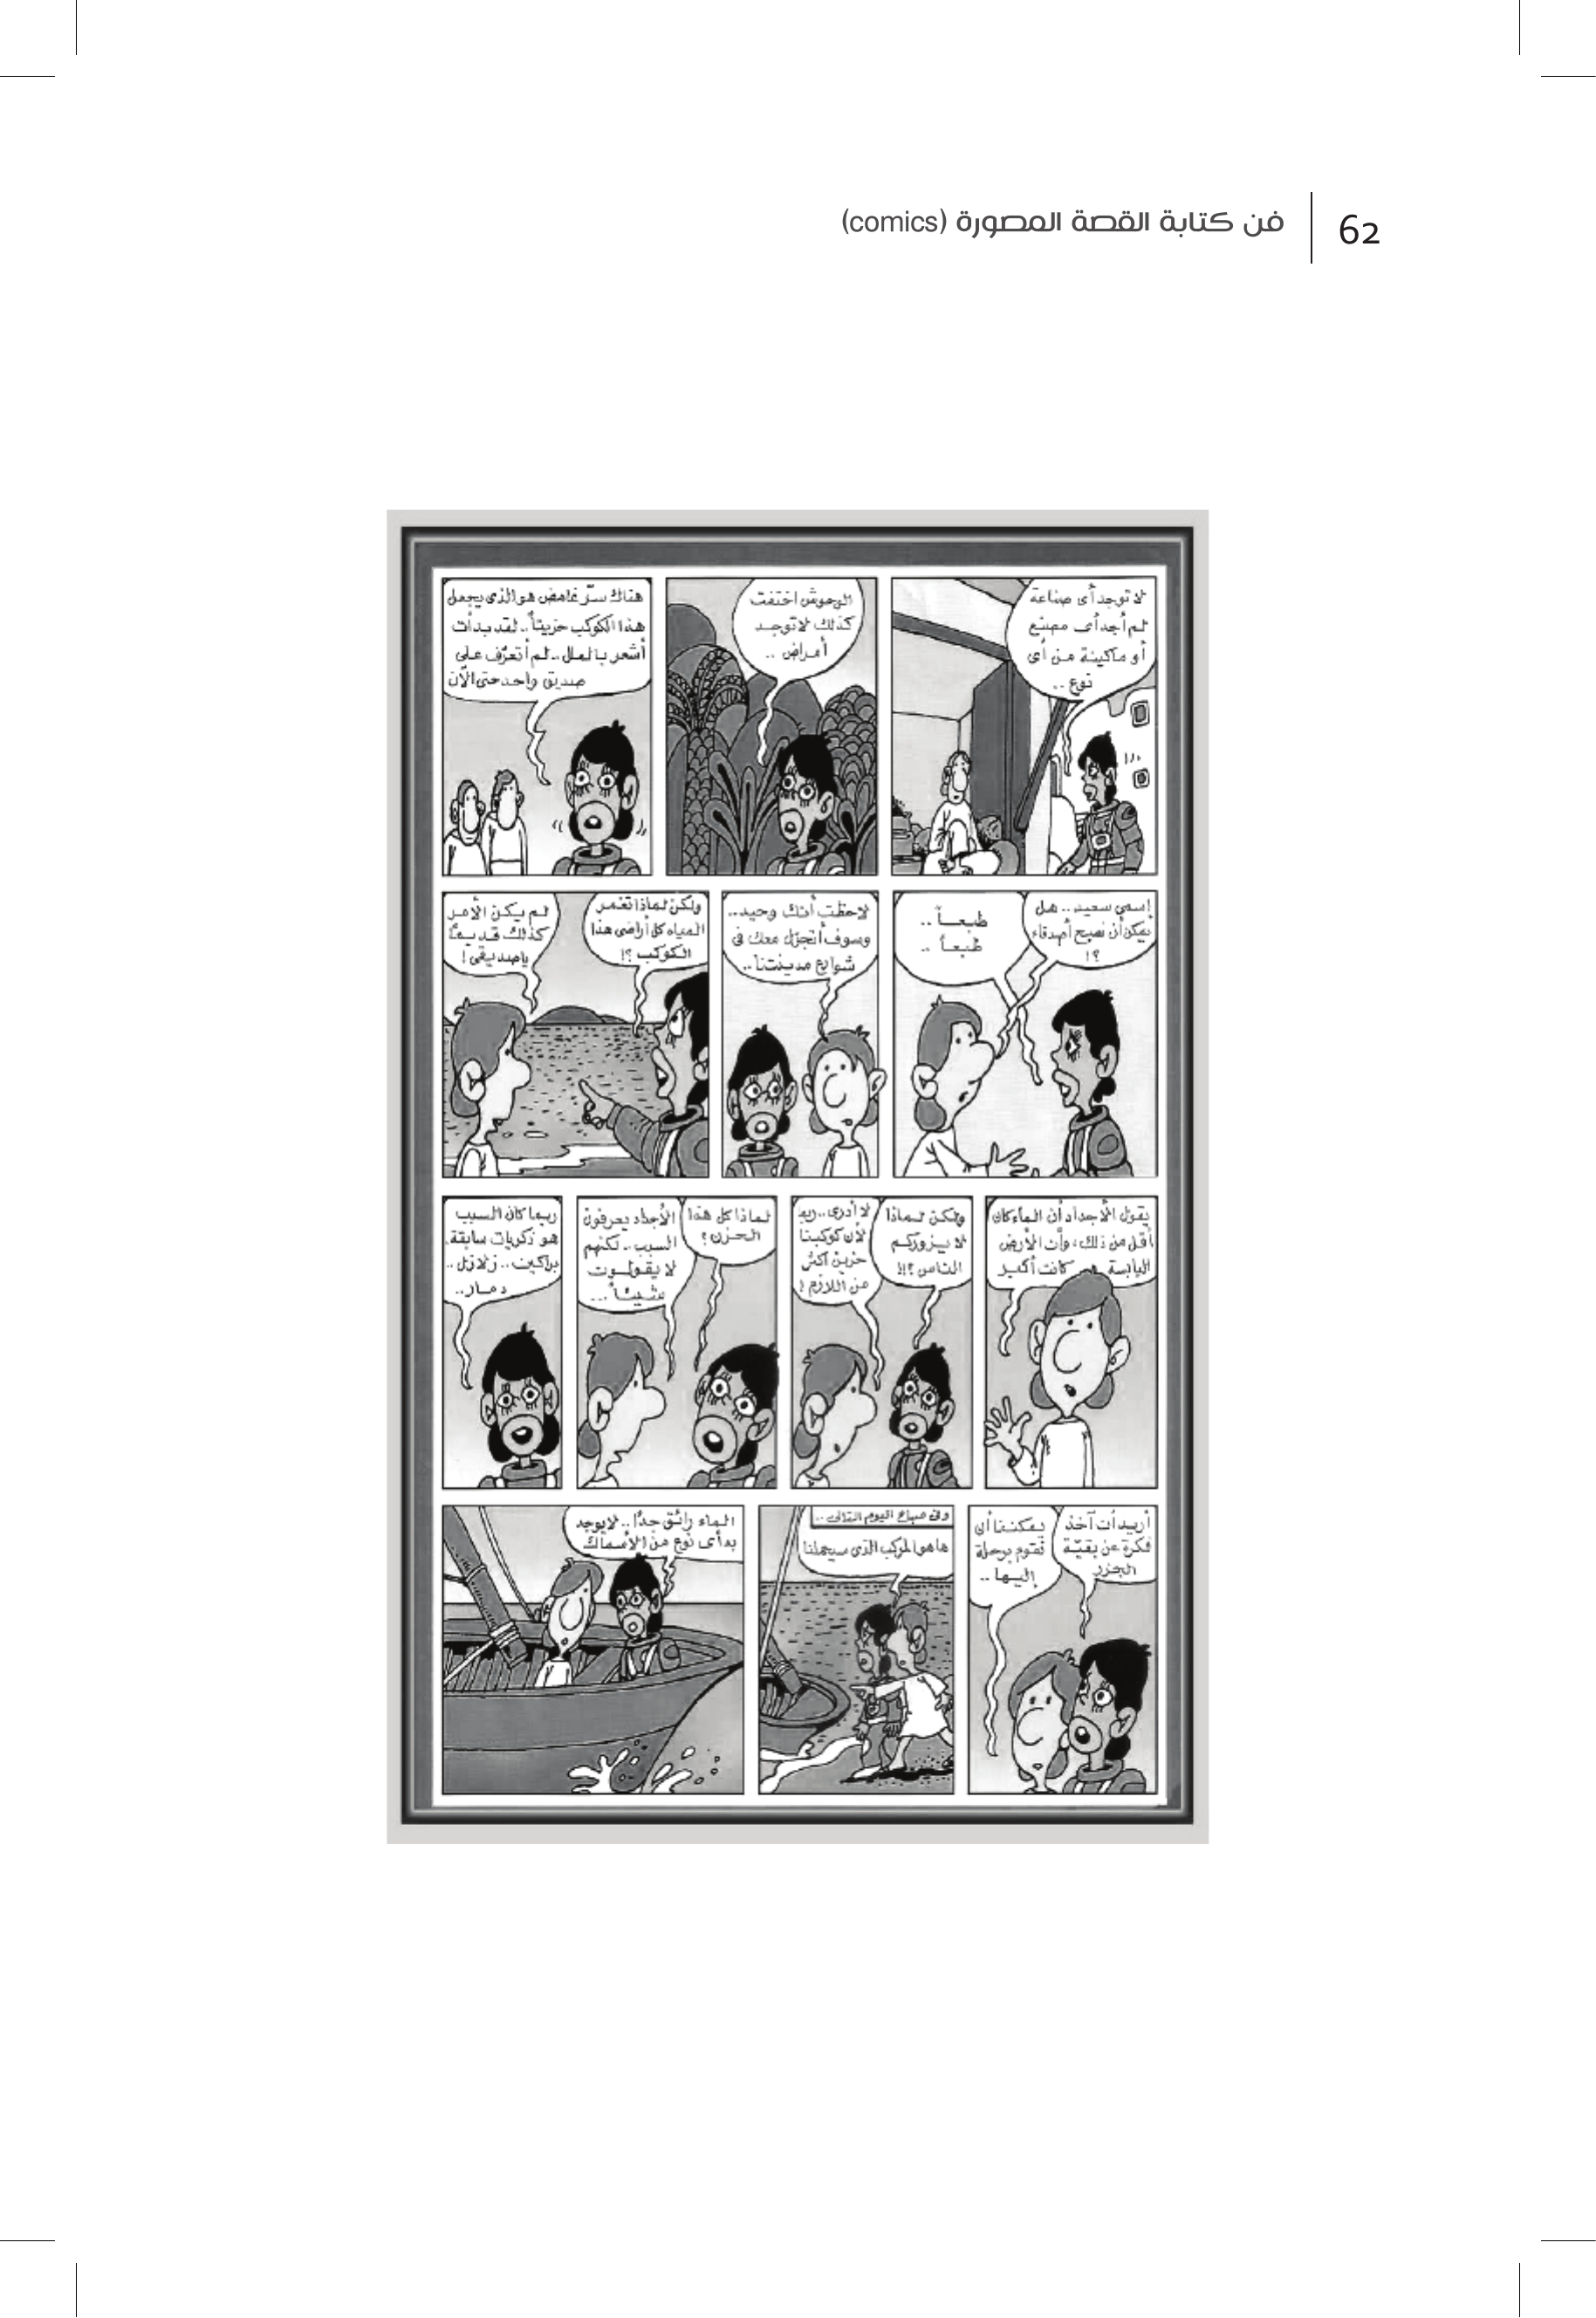 62
فن كتابة القصة المصورة (comics)
لا توجد أى صناعة
لم أجد أى مصنع
أو ماكينة من أى
نوع ..
الوحوش اختفت
كذلك لا توجد
أمراض ..
هناك سرّ غامض هو الذى يجعل
هذا الكوكب حزيناً.. لقد بدأت
أشعر بالملل.. لم أتعرّف على
صديق واحد حتى الآن
إسمى سعيد.. هل
يمكن أن نصبح أصدقاء
؟!
طبعاً ..
طبعاً ..
لاحظت أنك وحيد..
وسوف أتجوّل معك فى
شوارع مدينتنا..
ولكن لماذا تغمر
المياه كل أراضى هذا
الكوكب ؟!
لم يكن الأمر
كذلك قديماً
يا صديقى !
يقول الأجداد أن الماء كان
أقل من ذلك، وأن الأرض
اليابسة كانت أكبر
ولكن لماذا
لا يزوركم
الناس ؟!!
لا أدرى.. ربما
لأن كوكبنا
حزين أكثر
من اللازم !
لماذا كل هذا
الحزن ؟
الأجداد يعرفون
السبب.. لكنهم
لا يقولون
شيئاً ...
ربما كان السبب
هو ذكريات سابقة.
براكين.. زلازل..
دمار..
أريد أن آخذ
فكرة عن بقيّة
الجزر
يمكننا أن
نقوم برحلة
إليها ..
وفى صباح اليوم التالى ..
ها هو المركب الذى سيحملنا
الماء رائق جداً.. لا يوجد
به أى نوع من الأسماك